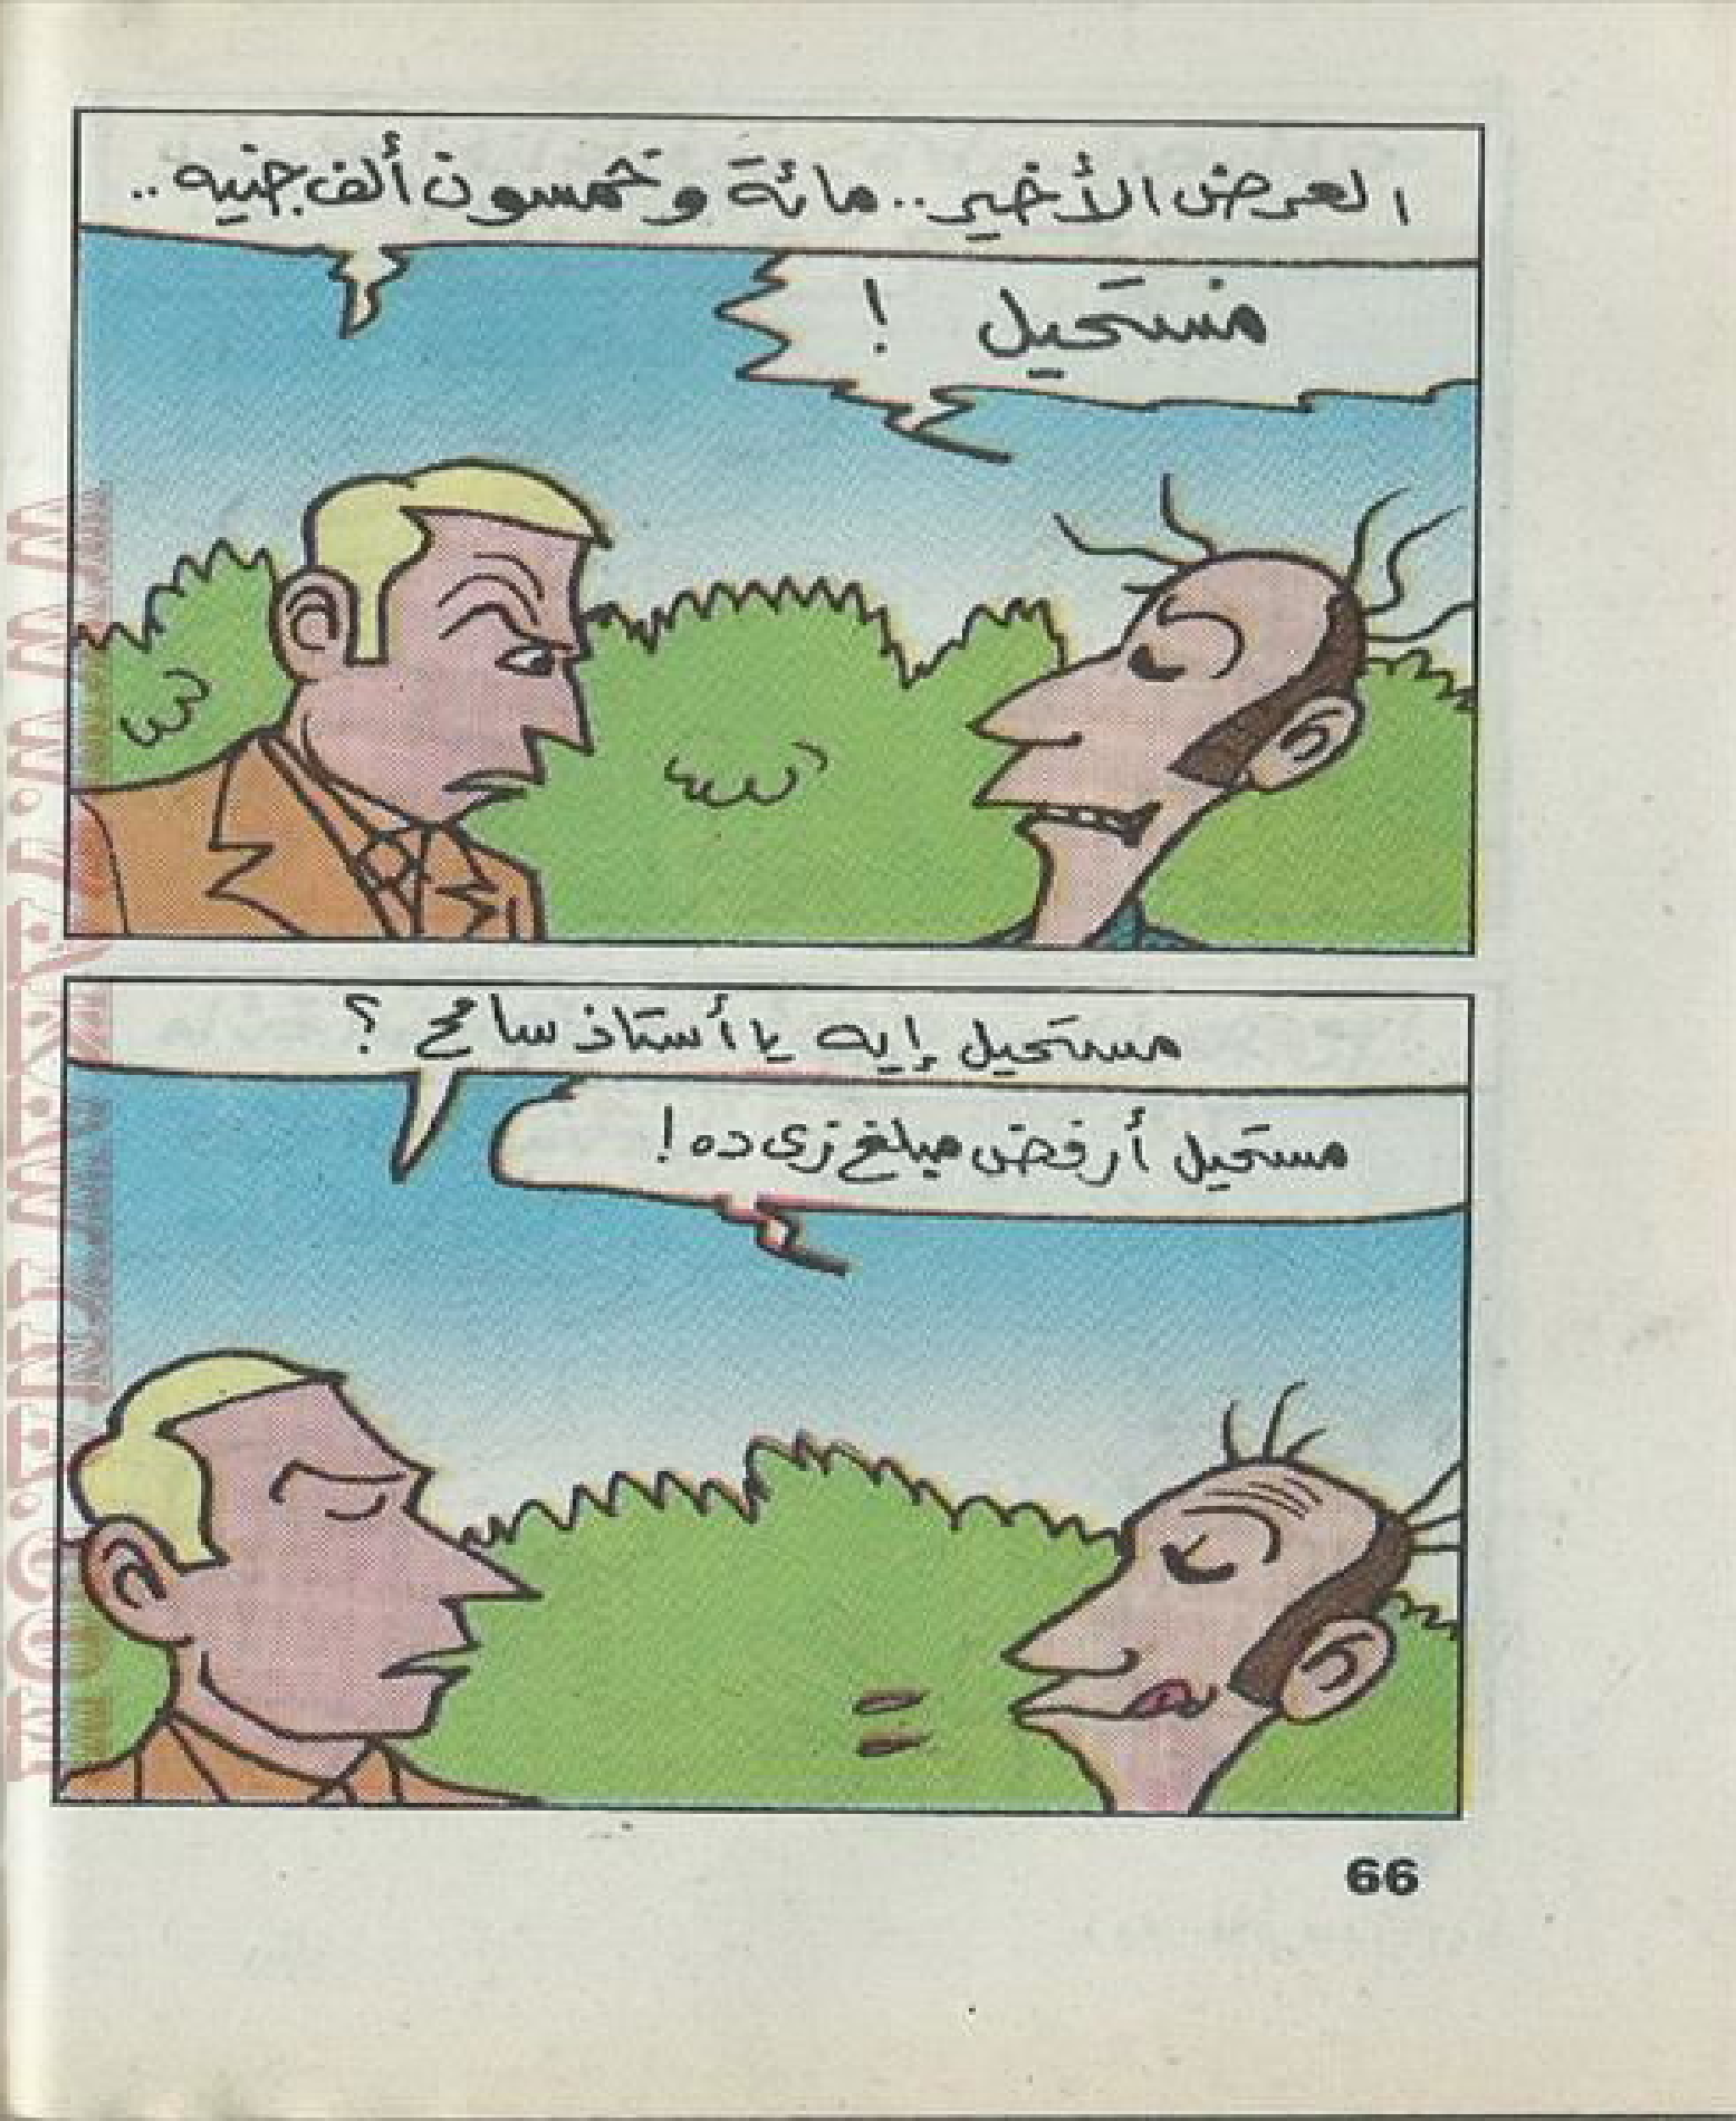 العرض الأخير.. مائة وخمسون ألف جنيه..
مستحيل !
مستحيل إيه يا أستاذ سامح ؟
مستحيل أرفض مبلغ زى ده !
66